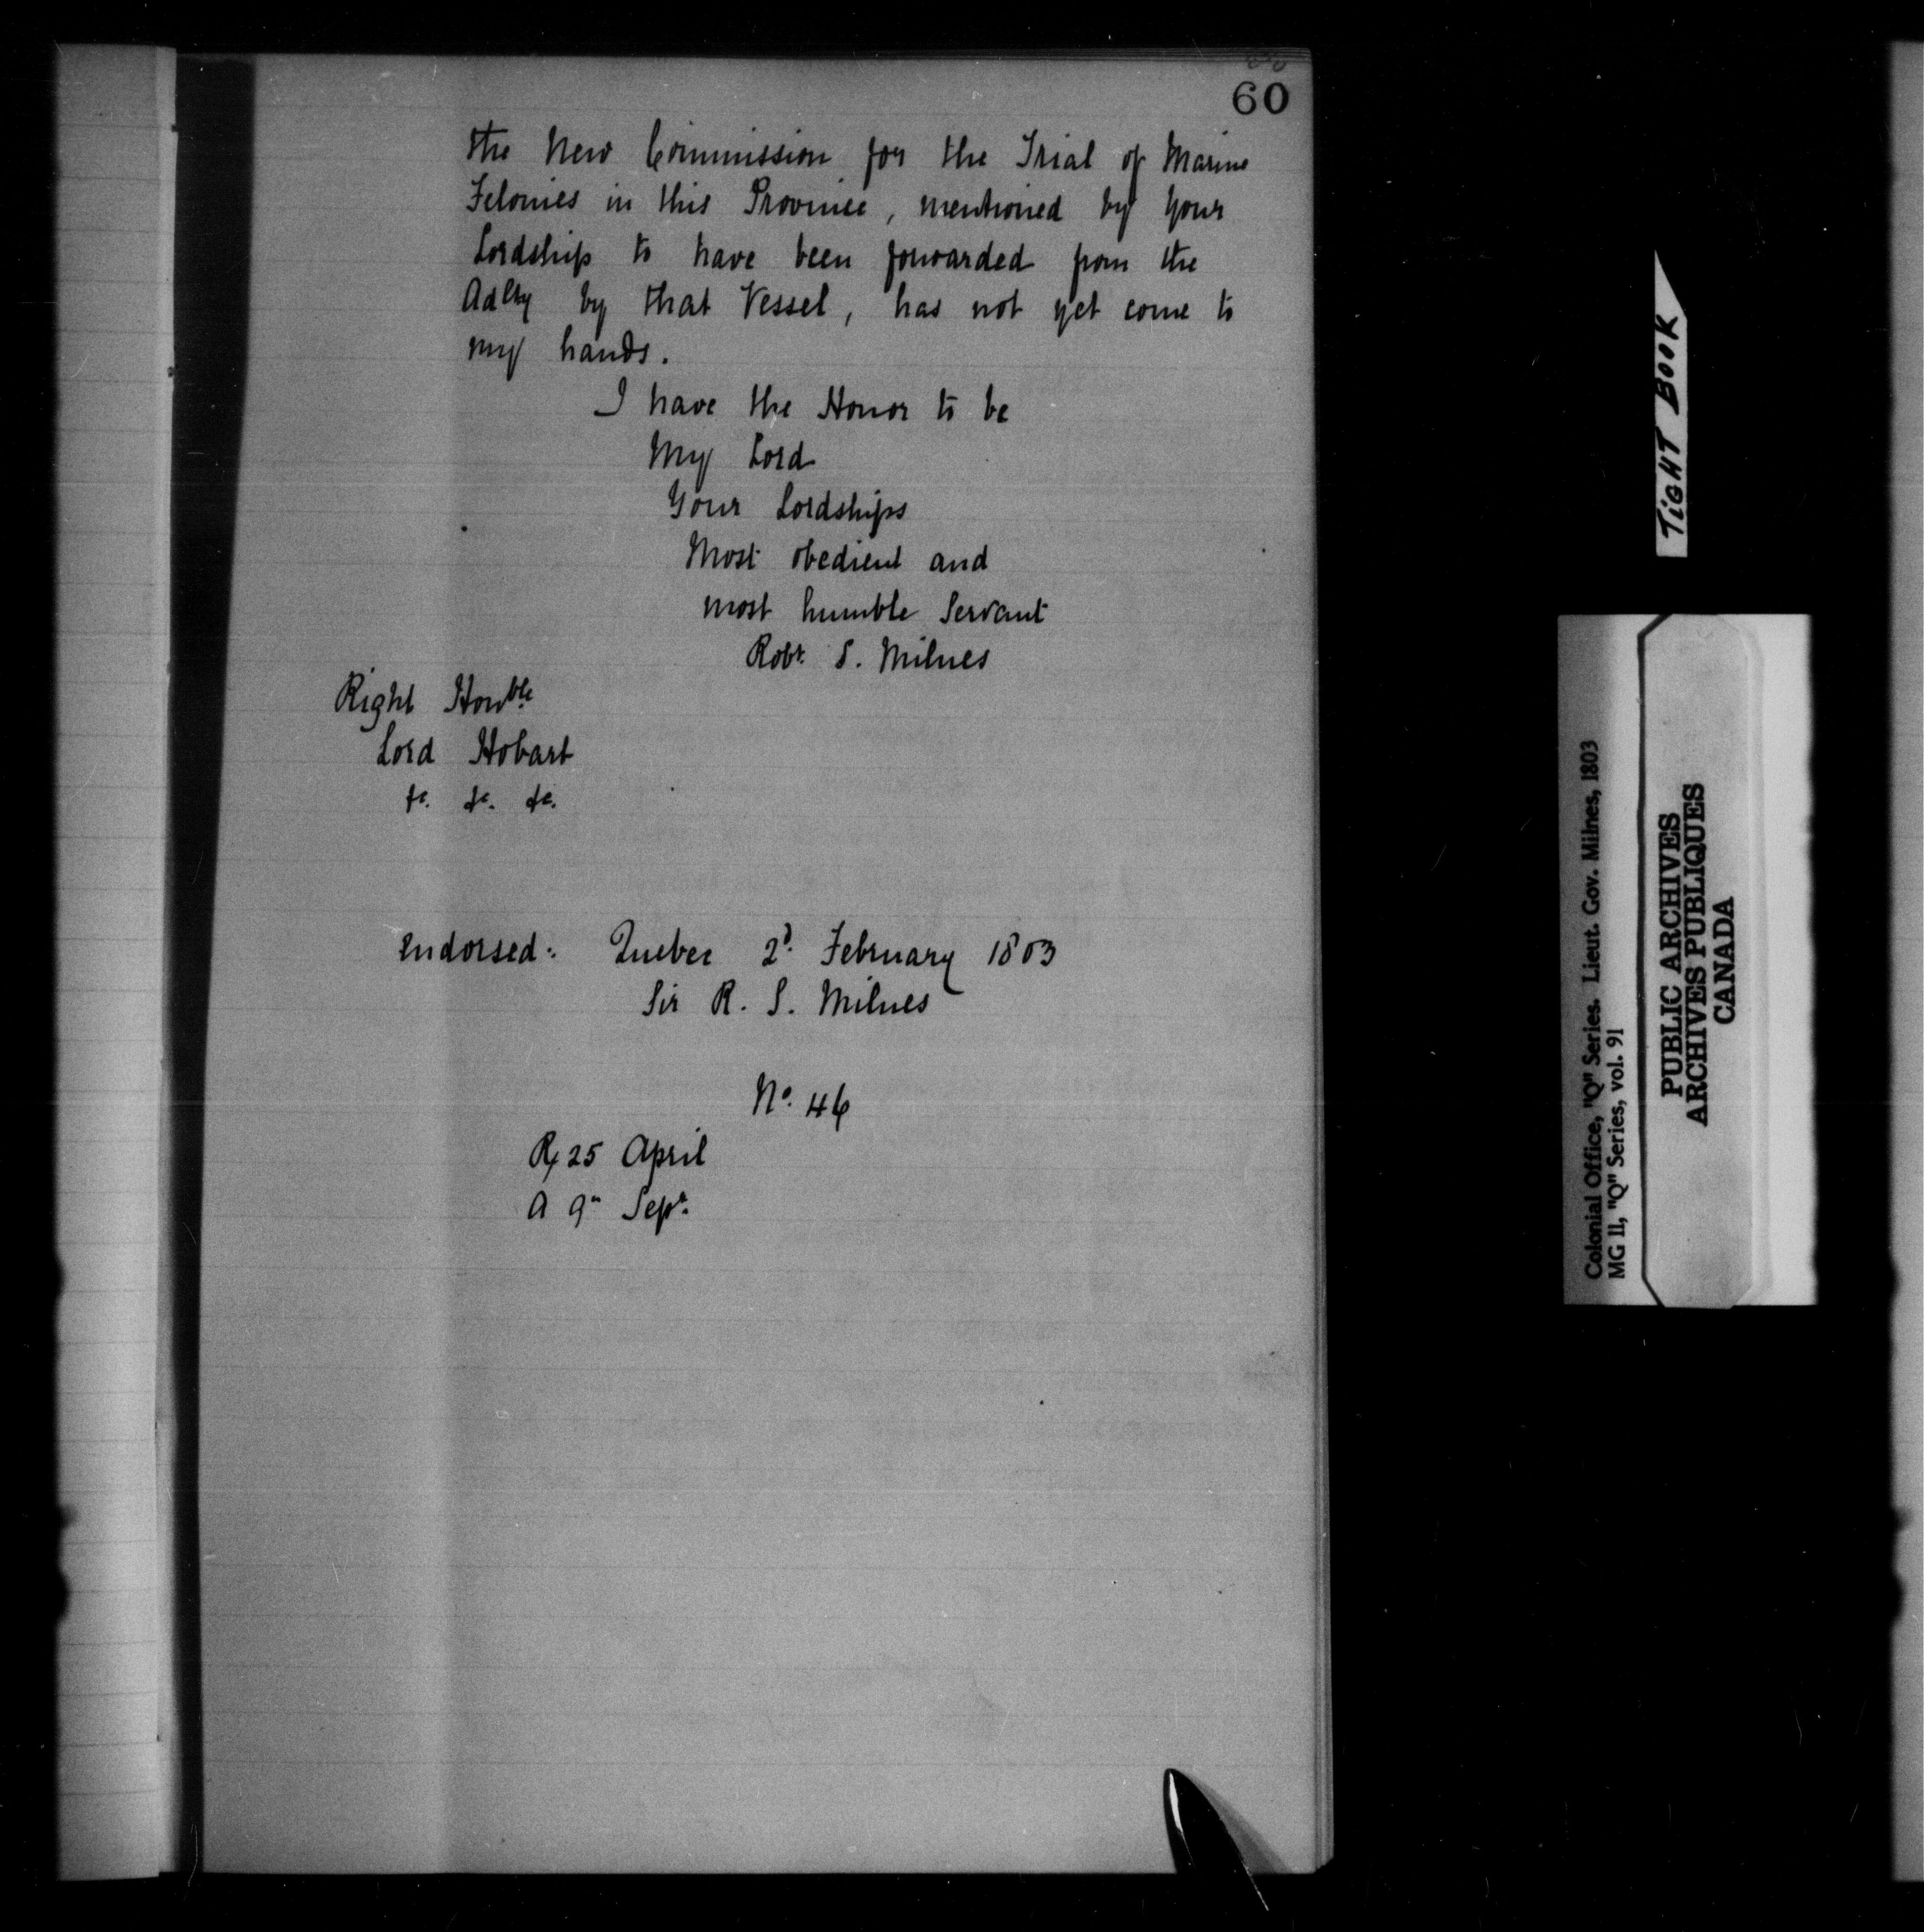 60
the New Commission for the Trial of Marine
Felonies in this Province, mentioned by your
Lordship to have been forwarded from the
Adlty by that Vessel, has not yet come to
my hands.
I have the Honor to be
My Lord
Your Lordships
Most obedient and
most humble Servant
Robt. S. Milnes
Right Honble.
Lord Hobart
&c. &c. &c.
endorsed: Quebec 2d. February 1803
Sir R. S. Milnes
No. 46
R 25 April
A 9" Sepr.
TiGHT BOOK
Colonial Office, "Q" Series. Lieut. Gov. Milnes, 1803
MG 11, "Q" Series, vol. 91
PUBLIC ARCHIVES
ARCHIVES PUBLIQUES
CANADA